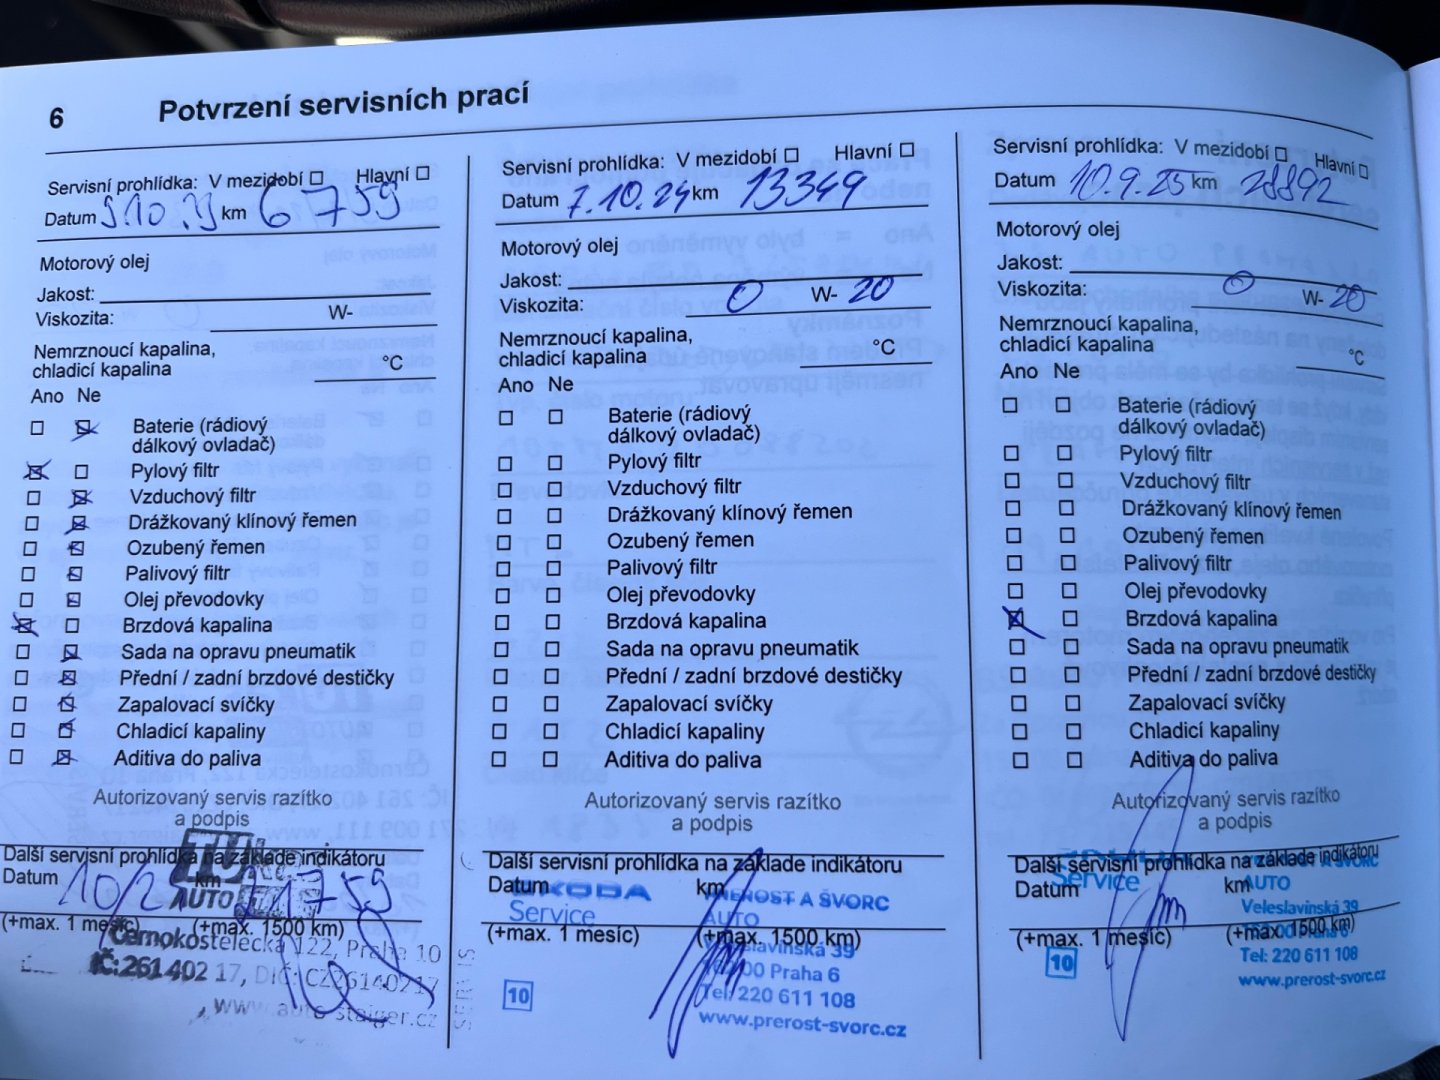 6 Potvrzení servisních prací
Servisní prohlídka: V mezidobí ☐ Hlavní ☐
Datum 9.10.23 km 6759
Motorový olej
Jakost:
Viskozita: W-
Nemrznoucí kapalina,
chladicí kapalina °C
Ano Ne
Baterie (rádiový
dálkový ovladač)
Pylový filtr
Vzduchový filtr
Drážkovaný klínový řemen
Ozubený řemen
Palivový filtr
Olej převodovky
Brzdová kapalina
Sada na opravu pneumatik
Přední / zadní brzdové destičky
Zapalovací svíčky
Chladicí kapaliny
Aditiva do paliva
Autorizovaný servis razítko
a podpis
Další servisní prohlídka na základe indikátoru
Datum km
AUTO
(+max. 1 mesíc) (+max. 1500 km)
Černokostelecká 122, Praha 10
IČ:261 402 17, DIČ: CZ26140217
www.auto-staiger.cz
SERVIS
Servisní prohlídka: V mezidobí ☐ Hlavní ☐
Datum 7.10.24 km 13349
Motorový olej
Jakost:
Viskozita: 0 W- 20
Nemrznoucí kapalina,
chladicí kapalina °C
Ano Ne
Baterie (rádiový
dálkový ovladač)
Pylový filtr
Vzduchový filtr
Drážkovaný klínový řemen
Ozubený řemen
Palivový filtr
Olej převodovky
Brzdová kapalina
Sada na opravu pneumatik
Přední / zadní brzdové destičky
Zapalovací svíčky
Chladicí kapaliny
Aditiva do paliva
Autorizovaný servis razítko
a podpis
Další servisní prohlídka na základe indikátoru
Datum km
ŠKODA PREROST A ŠVORC
Service AUTO
(+max. 1 mesíc) (+max. 1500 km)
Veleslavínská 39
162 00 Praha 6
10 Tel: 220 611 108
www.prerost-svorc.cz
Servisní prohlídka: V mezidobí ☐ Hlavní ☐
Datum 10.9.25 km 28892
Motorový olej
Jakost:
Viskozita: 0 W- 20
Nemrznoucí kapalina,
chladicí kapalina °C
Ano Ne
Baterie (rádiový
dálkový ovladač)
Pylový filtr
Vzduchový filtr
Drážkovaný klínový řemen
Ozubený řemen
Palivový filtr
Olej převodovky
Brzdová kapalina
Sada na opravu pneumatik
Přední / zadní brzdové destičky
Zapalovací svíčky
Chladicí kapaliny
Aditiva do paliva
Autorizovaný servis razítko
a podpis
Další servisní prohlídka na základe indikátoru
Datum km
Service AUTO
Veleslavínská 39
(+max. 1 mesíc) (+max. 1500 km)
162 00 Praha 6
10 Tel: 220 611 108
www.prerost-svorc.cz